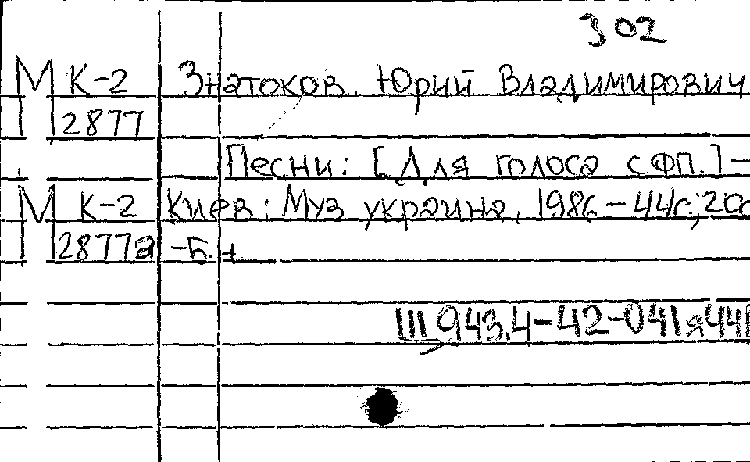 302
М К-2 Знатоков Юрий Владимирович
2877
Песни: [Для голоса с фп.]—
М К-2 Киев: Муз украина, 1986—44с;
2877а -Б.
Ш943.4-42-041я44